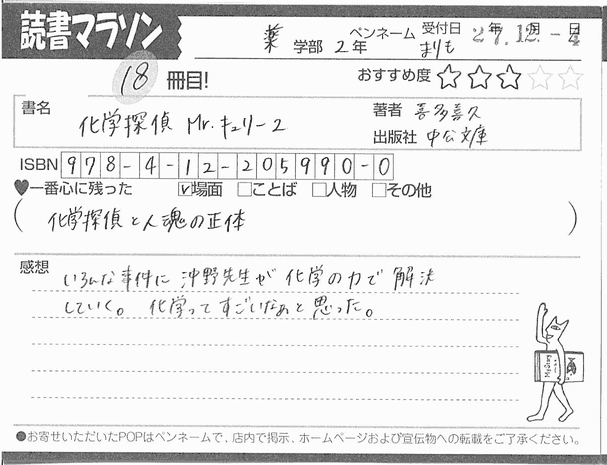 読書マラソン
薬 学部 2年 ペンネーム まりも 受付日 27年12月-4日
18 冊目! おすすめ度 ☆☆☆☆☆
書名 化学探偵 Mr.キュリー2 著者 喜多喜久
出版社 中公文庫
ISBN 978-4-12-205990-0
♥一番心に残った ☑場面 □ことば □人物 □その他
(化学探偵と人魂の正体)
感想
いろんな事件に沖野先生が化学の力で解決
していく。化学ってすごいなぁと思った。
●お寄せいただいたPOPはペンネームで、店内で掲示、ホームページおよび宣伝物への転載をご了承ください。